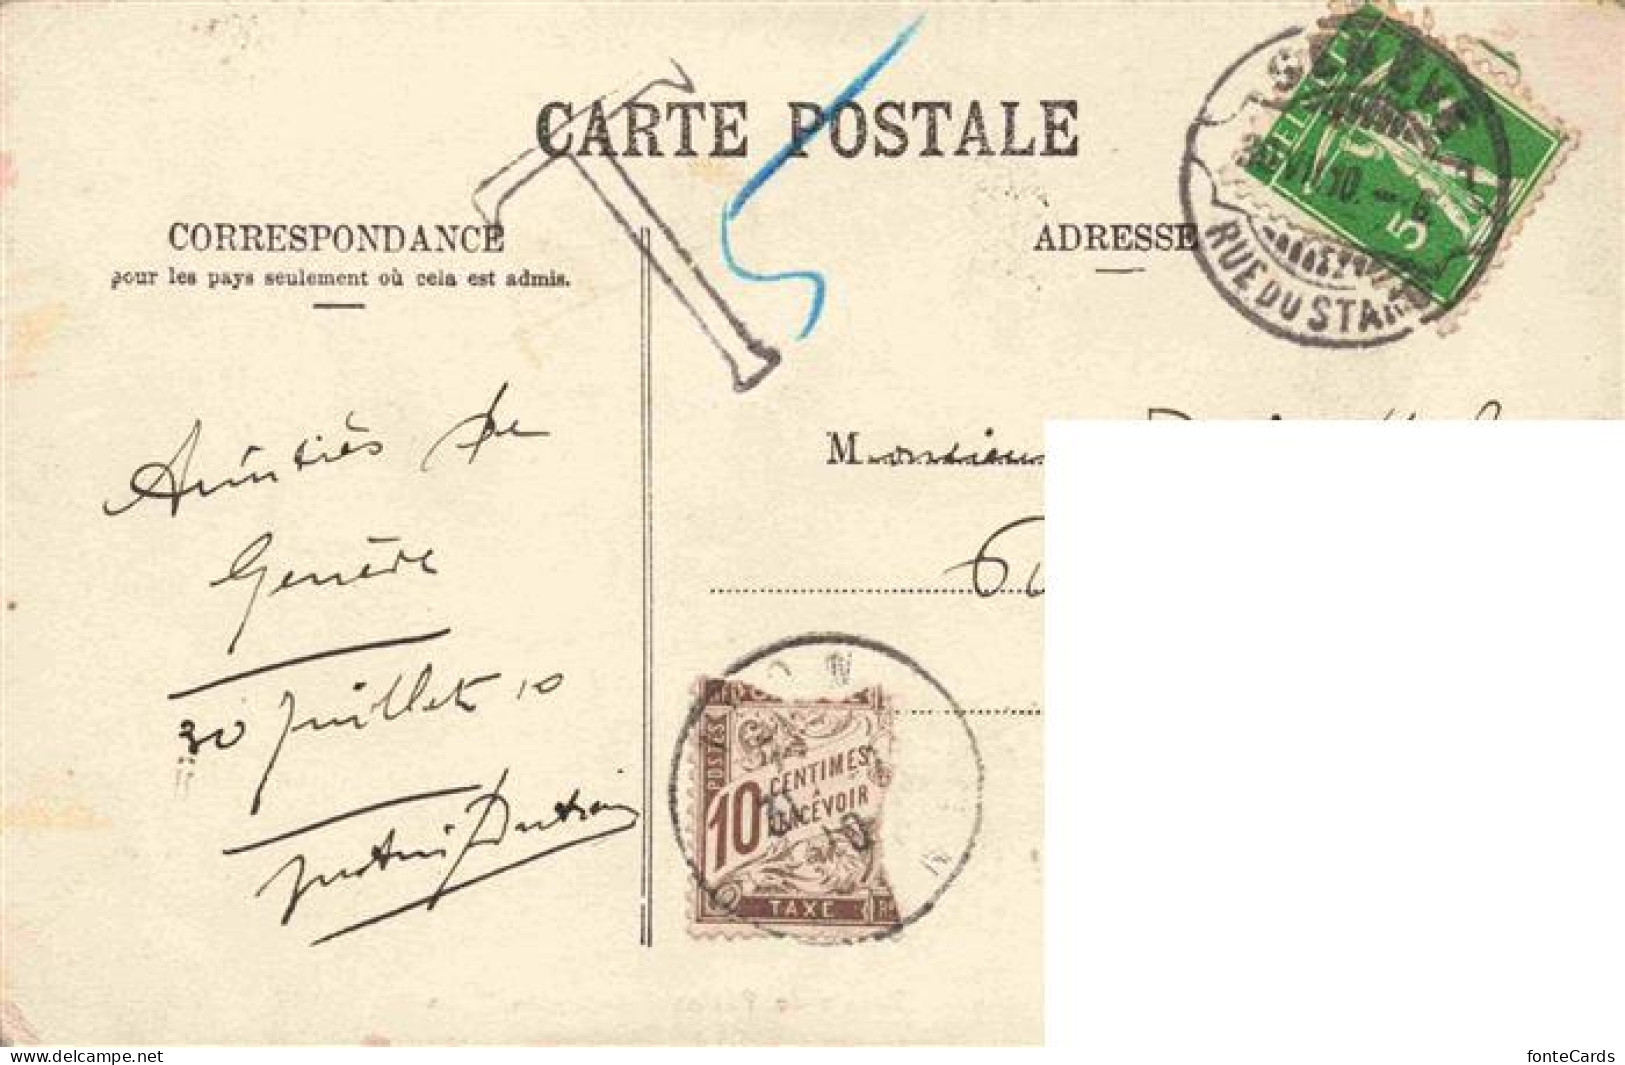 CARTE POSTALE
CORRESPONDANCE
pour les pays seulement où cela est admis.
ADRESSE
T
5
HELVETIA
5
RUE DU STAND
Amitiés de
Genève
30 Juillet 10
Monsieur
POSTES
10
CENTIMES
A
PERCEVOIR
TAXE
delcampe.net
fonteCards